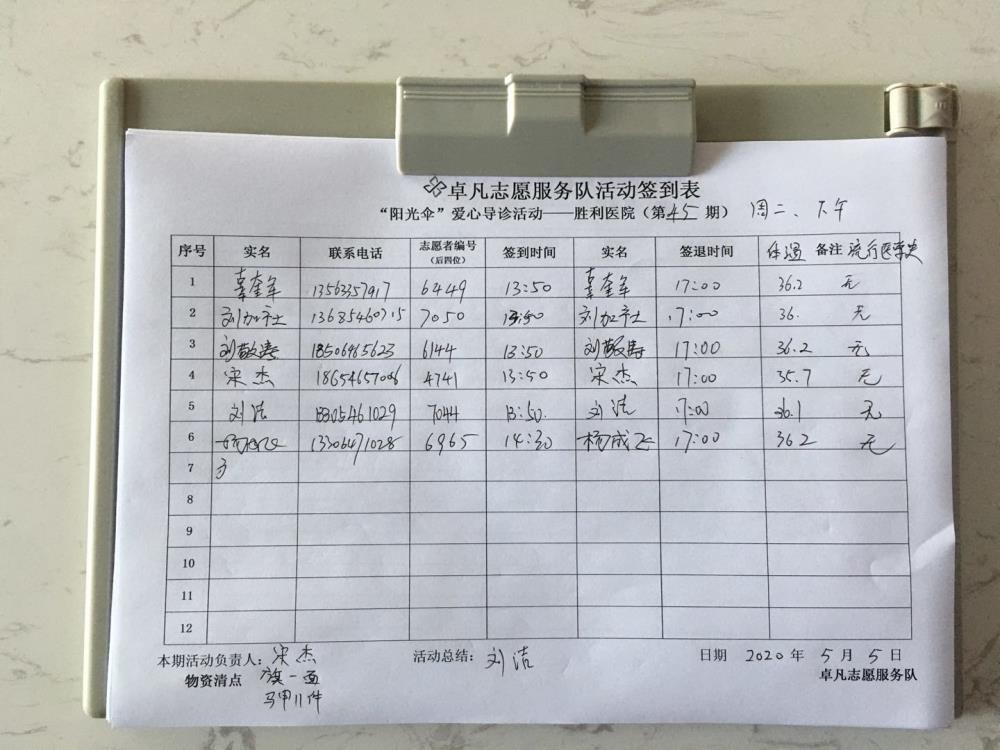 卓凡志愿服务队活动签到表
“阳光伞”爱心导诊活动——胜利医院（第45期） 周二、下午
序号 实名 联系电话 志愿者编号（后四位） 签到时间 实名 签退时间 体温 备注 流行医学史
1 辜奎军 13563357917 6449 13:50 辜奎军 17:00 36.2 无
2 刘加 13685460715 7050 13:50 刘加 17:00 36. 无
3 刘敬涛 18506485623 6144 13:50 刘敬涛 17:00 36.2 无
4 宋杰 18654657006 4741 13:50 宋杰 17:00 35.7 无
5 刘洁 461029 7044 13:50. 刘洁 17:00 36.1 无
6 杨成飞 13306471028 6965 14:30 杨成飞 17:00 36.2 无
7
8
9
10
11
12
本期活动负责人：宋杰 活动总结：刘洁 日期 2020年5月5日
物资清点 旗一面 卓凡志愿服务队
马甲11件